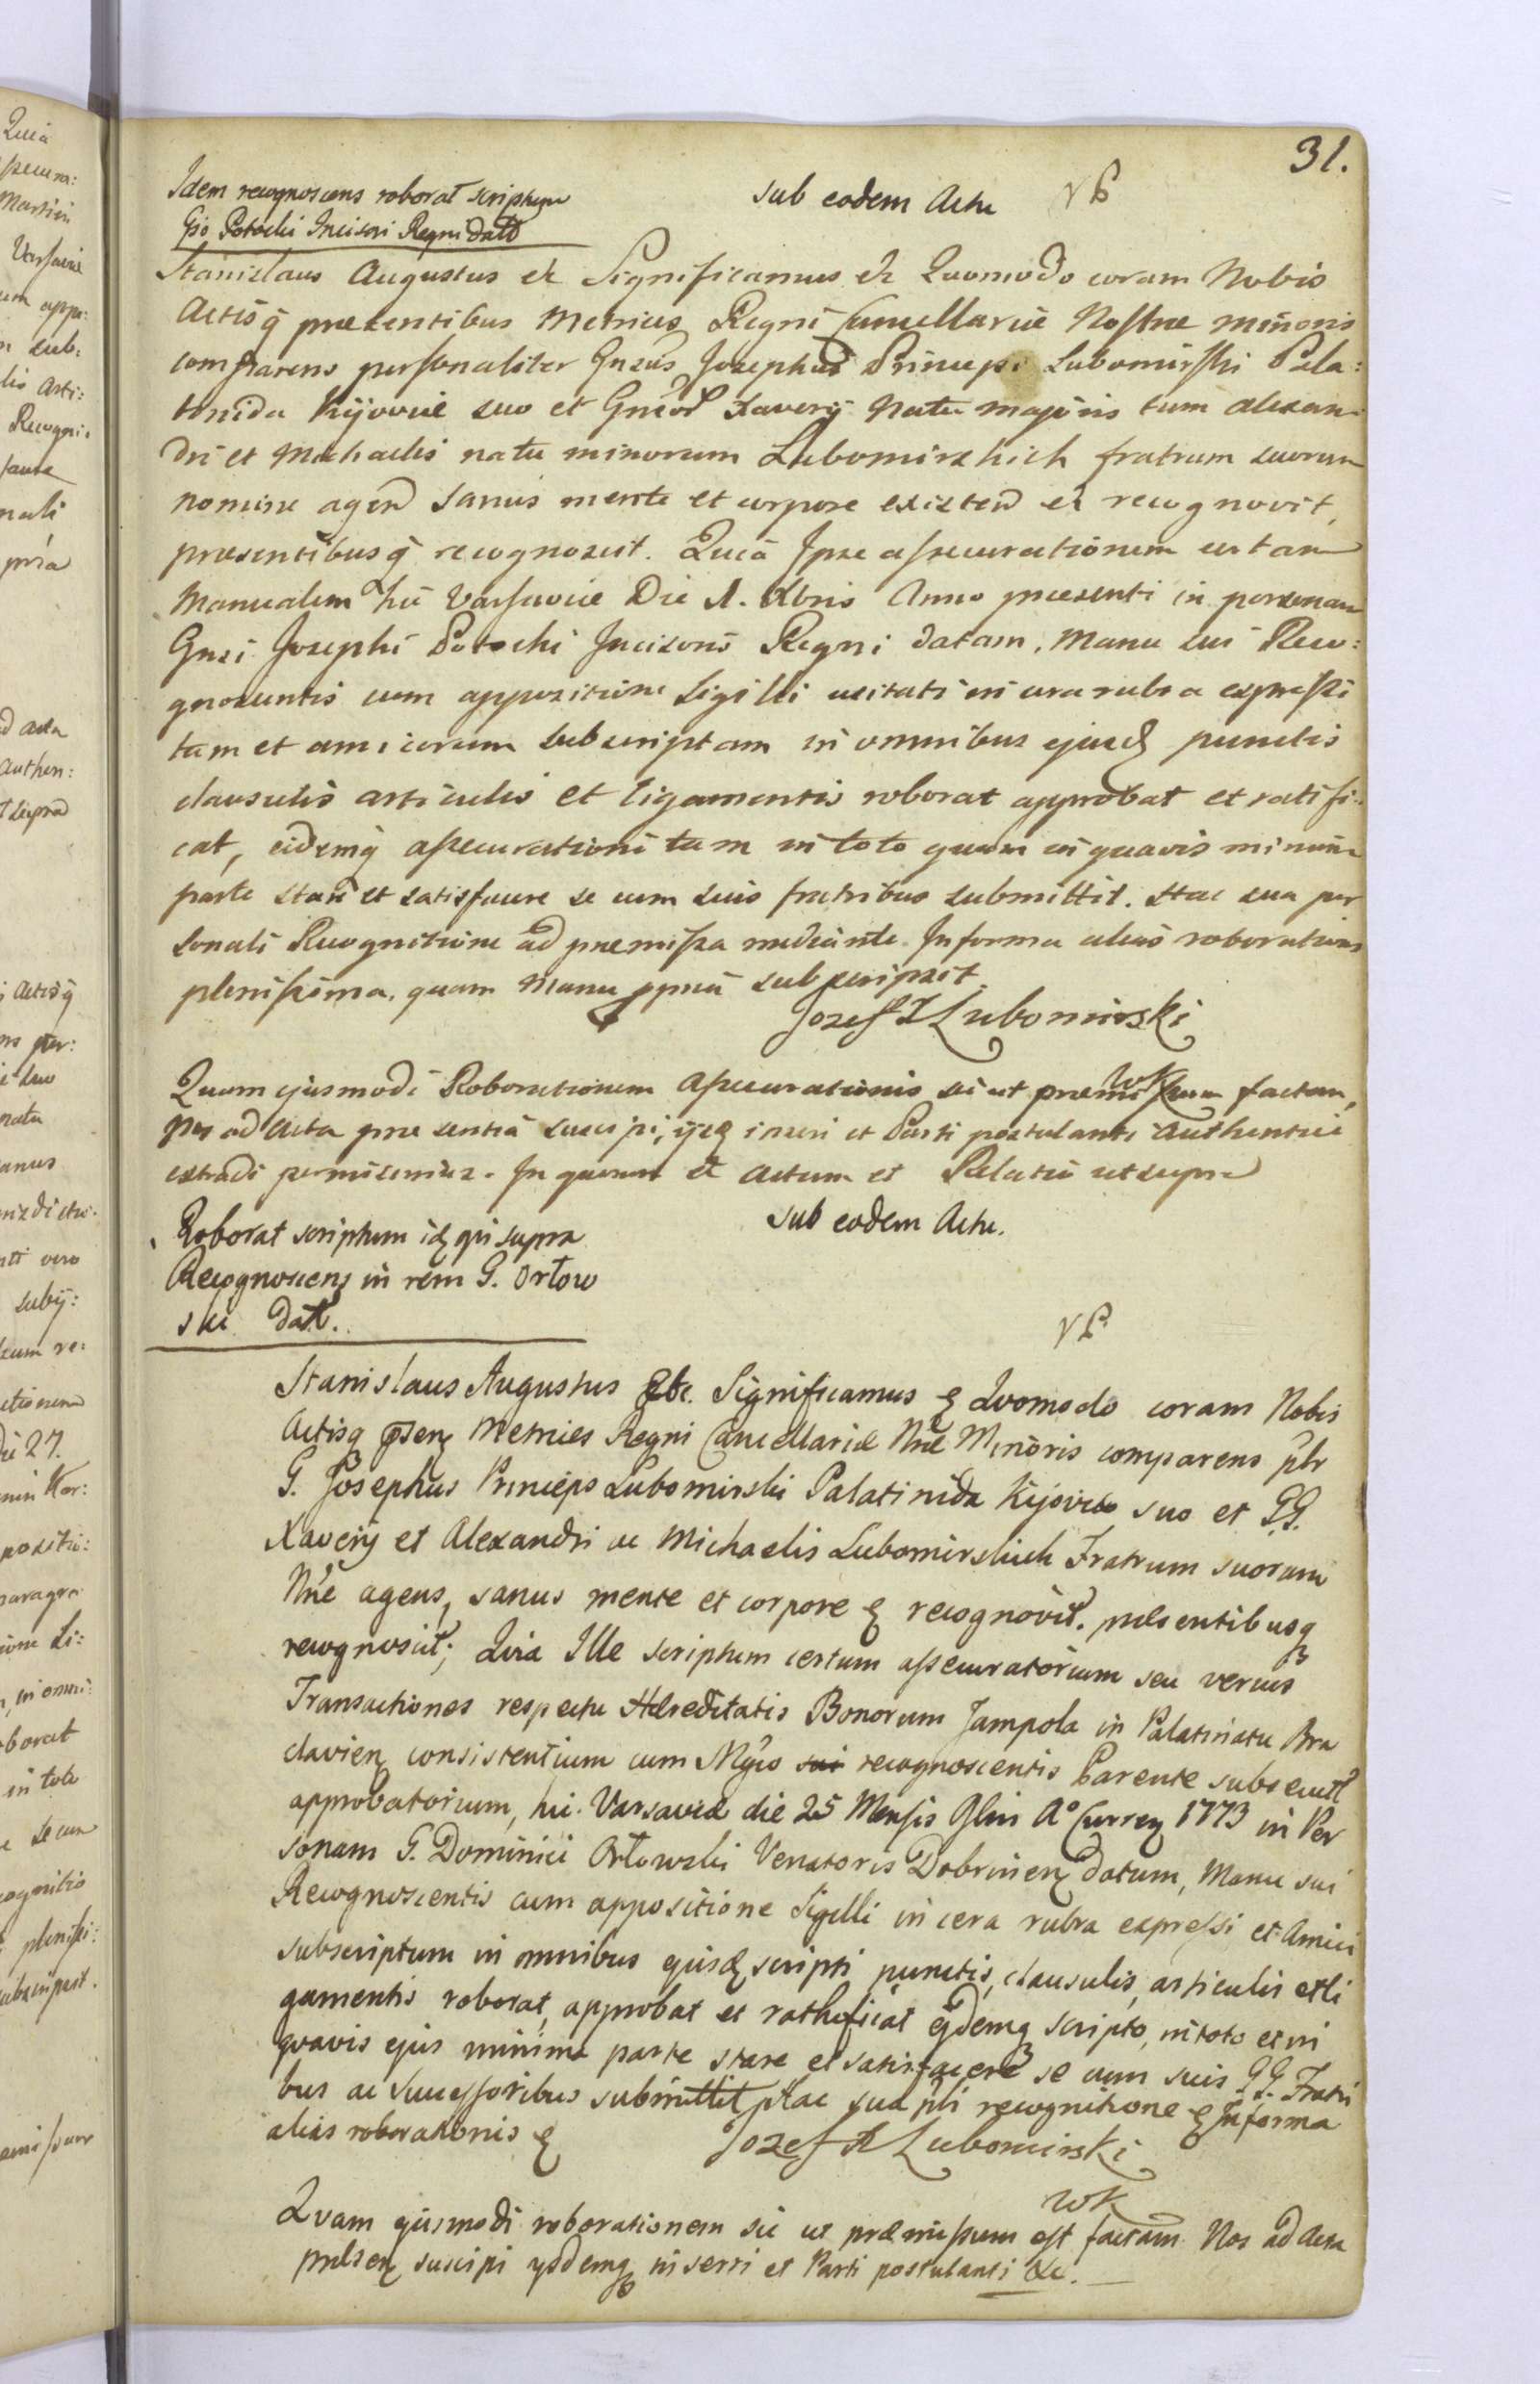 31.
Idem recognoscens roborat scriptum
Gso Potocki Incisori Regni dato
sub eodem Actu
Stanislaus Augustus et Significamus et Quomodo coram Nobis
Actisq̃ praesentibus Metrices Regni Cancellariae Nostrae minoris
comparens personaliter Gnsus Josephus Princeps Lubomirski Pala:
tinida Kijoviae suo et Gnsor Xaverij natu majoris tum alexan:
dri et Michaelis natu minorum Lubomirskich fratrum suorum
nomine agen sanus mente et corpore existen et recognovit,
praesentibusq̃ recognoscit. Quia Ipse assecurationem certam
Manualem hic Varsaviae Die 1. Xbris Anno praesenti in personam
Gnsi Josephi Potocki Incisoris Regni datam, Manu sui Reco:
gnoscentis cum appositione Sigilli usitati in cera rubra expressi
tam et amicorum subscriptam in omnibus ejusd punctis
clausulis articulis et ligamentis roborat approbat et ratifi:
cat, eidemq̃ assecurationi tam in toto quam in quavis minima
parte stare et satisfacere se cum suis fratribus submittit. Hac sua per
sonali Recognitione ad praemissa mediante. In forma alias roborationis
plenissima, quam Manu ppria subscripsit.
Jozef X Lubomirski
WK
Quam ejusmodi Roborationem Assecurationis sic ut praemissum factam,
Nos ad Acta praesentia suscipi, ijsq inseri et Parti postulanti Authentice
extradi permisimus. In quorum et Actum et Relatio ut supra
Roborat scriptum id qui supra
Recognoscens in rem G. Orłow
ski dat.
sub eodem Actu.
Stanislaus Augustus Etc. Significamus & Quomodo coram Nobis
Actisq p̃sen Metrices Regni Cancellariae Nrae Minoris comparens plr
G. Josephus Princeps Lubomirski Palatinida Kijoviae suo et G.G.
Xaverij et Alexandri ac Michaelis Lubomirskich Fratrum suorum
Nne agens, sanus mente et corpore & recognovit. praesentibusq
recognoscit; Quia Ille scriptum certum assecuratorium seu verius
Transactiones respectu Haereditatis Bonorum Jampola in Palatinatu Bra
clavien consistentium cum Mgco sui recognoscentis Parente subsecut
approbatorium, hic Varsaviae die 25 Mensis Qbris A° Curren 1773 in Per
sonam G. Dominici Orłowski Venatoris Dobrinen datum, Manu sui
Recognoscentis cum appositione Sigilli in cera rubra expressi et Amici
subscriptum in omnibus ejusd scripti punctis, clausulis, articulis et li
gamentis roborat, approbat et rathificat ejdemq scripto, in toto et in
quavis ejus minima parte stare et satisfacere se cum suis G.G. Fratri
bus ac Successoribus submittit Hac sua pli recognitione & In forma
alias roborationis &
Jozef X Lubomirski
WK
Quam ejusmodi roborationem sic ut praemissum est factam Nos ad Acta
praesen suscipi ijsdemq inserri et Parti postulanti &c.